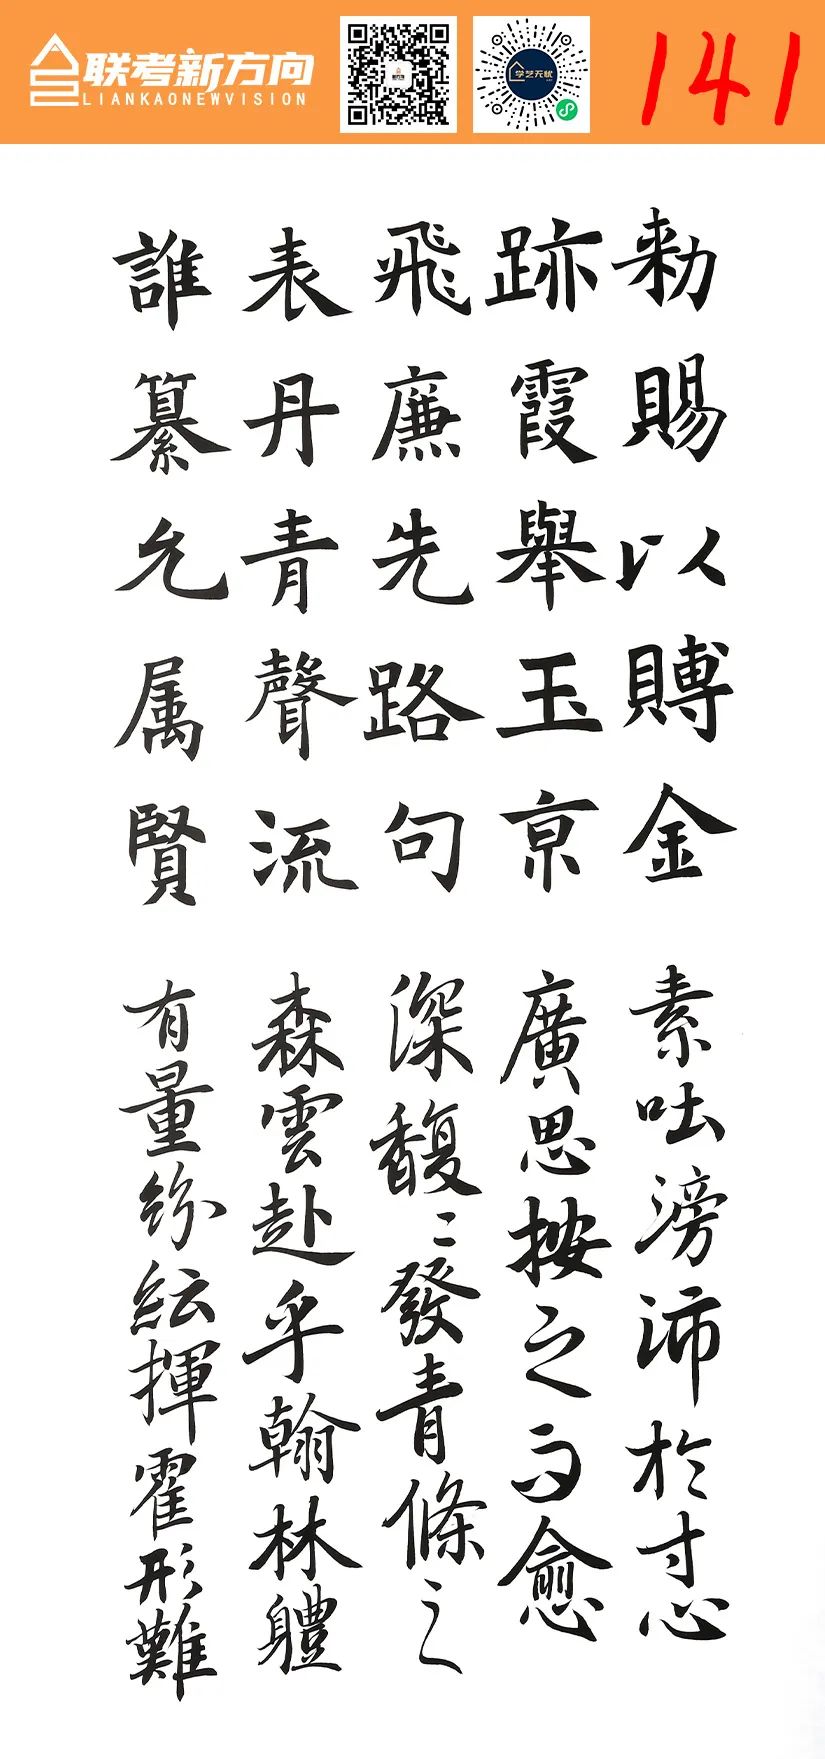 联考新方向
LIANKAONEWVISION
学艺无忧
141
勑賜以賻金
跡霞舉玉亰
飛廉先路句
表丹青聲流
誰纂允属賢
素吐滂沛於寸心
廣思按之而愈
深馥〻發青條之
森雲赴乎翰林體
有量紛紜揮霍形難